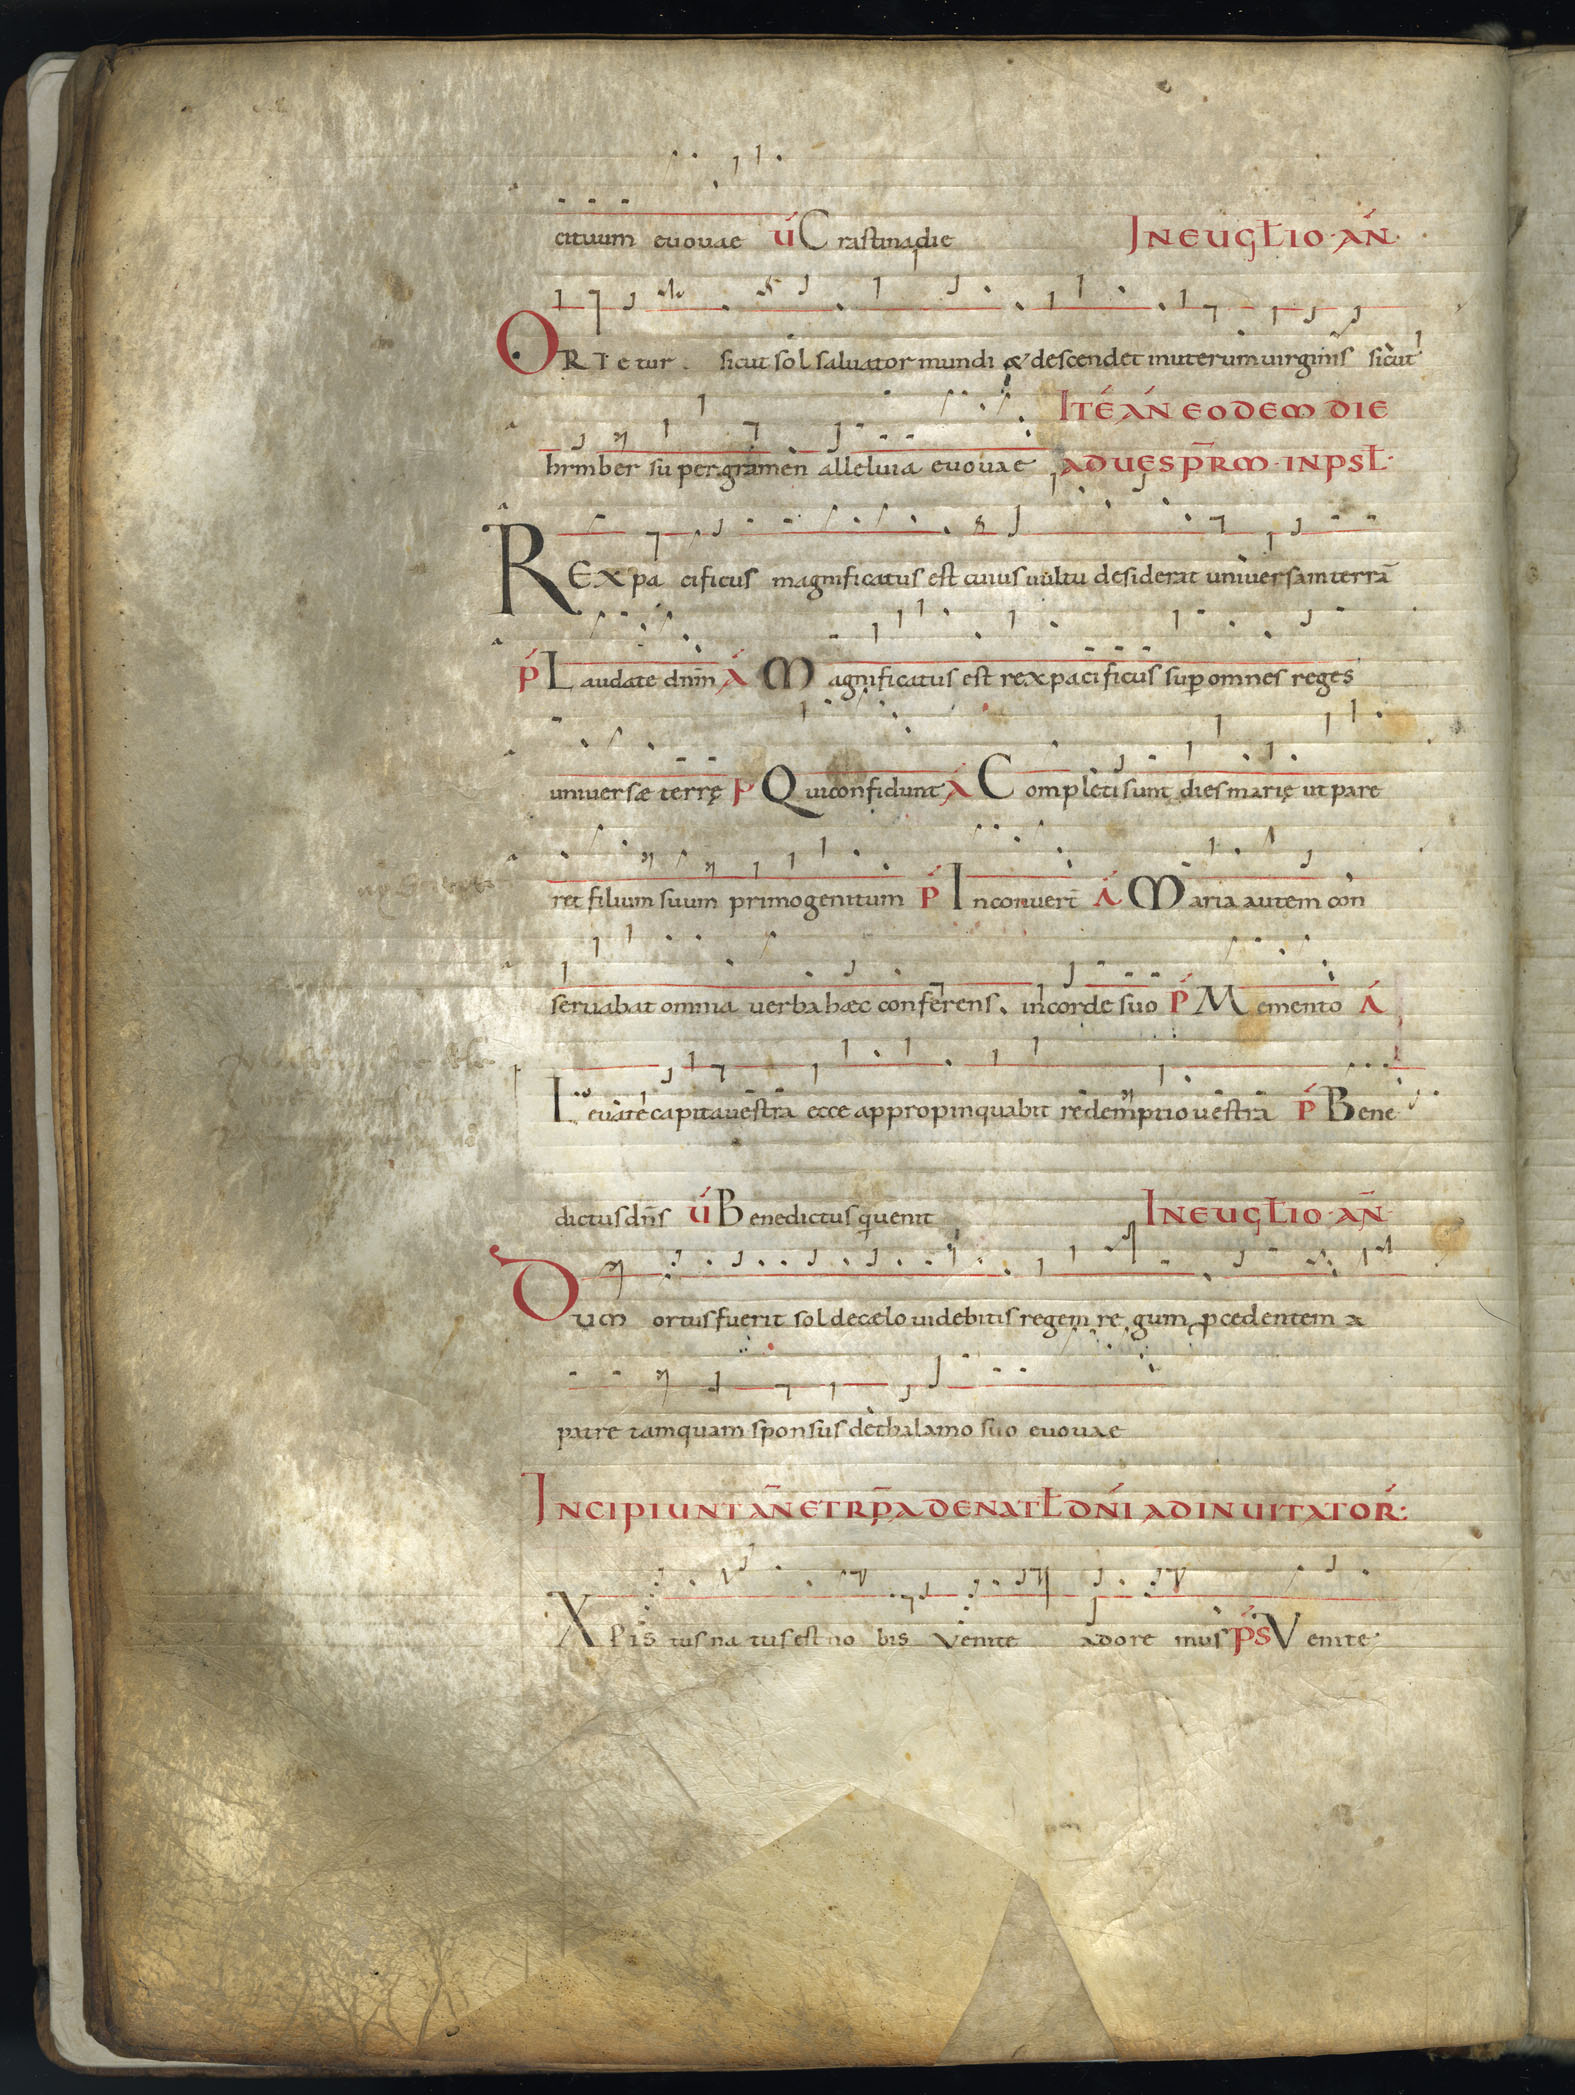 cituum euouae V́ Crastina die IN EUGŁIO · AŃ ·
ORIetur . sicut sol saluator mundi & descendet in uterum uirginis sicut
ITÉ AŃ EODEM DIE
hymber super gramen alleluia euouae AD UESPR̄M · IN PSŁ ·
REX pacificus magnificatus est cuius uultu desiderat uniuersam terrā
Ṕ Laudate dnm̄ Á Magnificatus est rex pacificus sup omnes reges
uniuersæ terrę P Qui confidunt Á Completi sunt dies marię ut pare
ret filium suum primogenitum Ṕ In conuert̄ Á Maria autem con
seruabat omnia uerba hæc conferens . in corde suo Ṕ Memento Á
Leuate capita uestra ecce appropinquabit redemptio uestra Ṕ Bene
dictus dn̄s V́ Benedictus q uenit IN EUGŁIO · AN̄ ·
DUM ortus fuerit sol de cælo uidebitis regem regum pcedentem a
patre tamquam sponsus de thalamo suo euouae
INCIPIUNT AN̄ ET RP̄A DE NATŁ DŃI AD INUITATOŔ :
XPIS tus natus est nobis Venite adore mus PŚ Venite